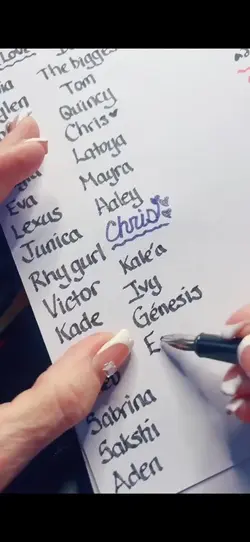 Love
The biggest
Tom
Quincy
Chris
Latoya
Mayra
Haley
Chris!
Kale'a
Ivy
Génesis
E
Eva
Lexus
Junica
Rhygurl
Victor
Kade
Sabrina
Sakshi
Aden